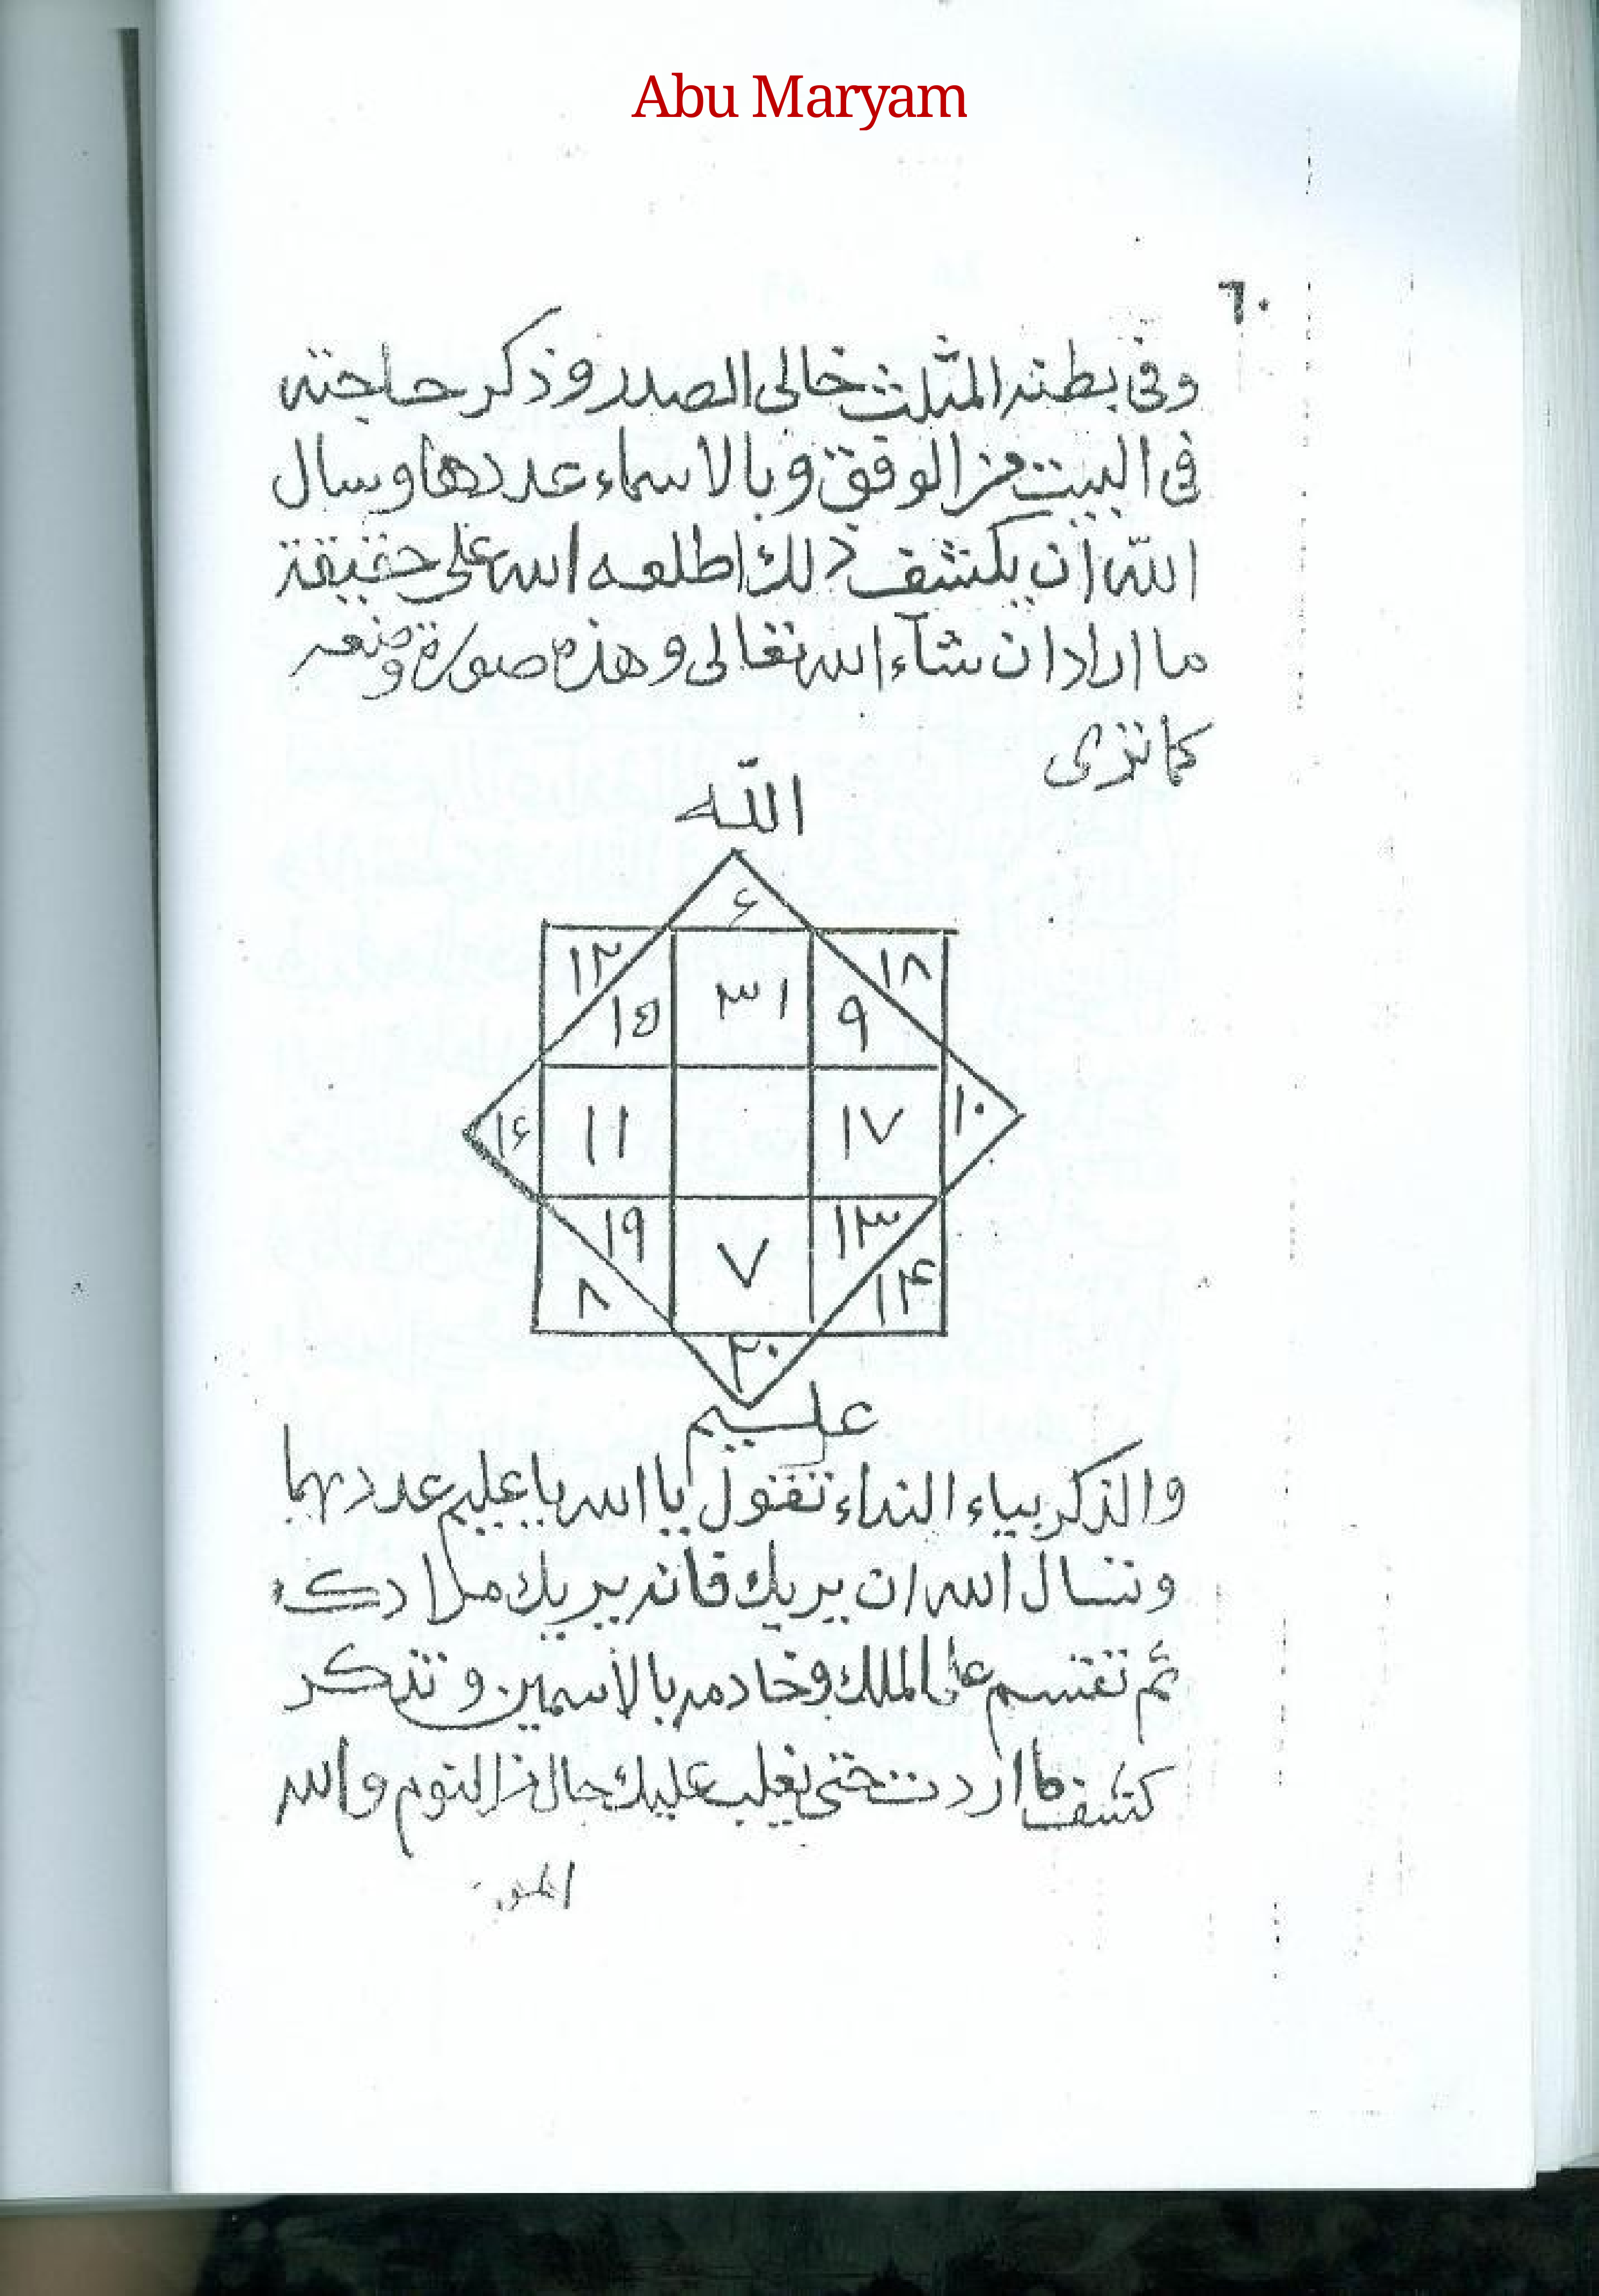 Abu Maryam
٦٠
وفى بطنه المثلث خالى الصدر وذكر حاجته
فى البيت من الوفق وبالاسماء عددها وسال
اللّه ان يكشف ذلك اطلعه الله على حقيقة
ما اراد ان شآء الله تعالى وهذه صورة وضعه
كما ترى
اللّه
۶
١٢ ١٨
١۵ ٣١ ٩
١۶ ١١ ١٧ ١٠
١٩ ٧ ١٣
٨ ١۴
٢٠
عليم
والذكر بياء النداء تقول يا الله يا عليم عددهما
وتسال الله ان يريك فانه يريك مرادك
ثم تقسم على الملك وخادمه بالأسمين وتذكر
كشف ما اردت حتى يغلب عليك حال من النوم والله